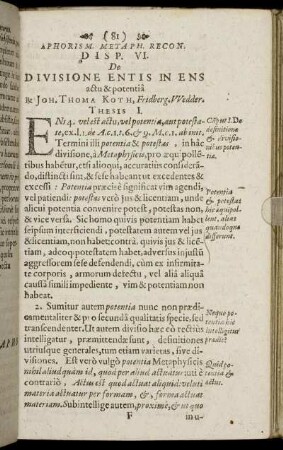 (81)
APHORISM. METAPH. RECON.
DISP. VI.
De
DIVISIONE ENTIS IN ENS
actu & potentiâ
R: JOH. THOMA KOTH, Fridberg. VVedder.
THESIS I.
ENs 4. vel est actu, vel potentia, aut potestate,
Termini illi potentia & potestas, in hâc
divisione, à Metaphysicis, pro æquipollentibus
habentur, etsi alioqui, accuratiùs considerando,
distincti sint, & se habeant ut excedentes &
excessi: Potentia præcisè significat vim agendi,
vel patiendi: potestas verò jus & licentiam, unde
alicui potentia convenire potest, potestas non,
& vice versa. Sic homo quivis potentiam habet
seipsum interficiendi, potestatem autem vel jus
& licentiam, non habet: contrà quivis jus & licentiam,
adeoq; potestatem habet, adversus injustũ
aggressorem sese defendendi, cùm ex infirmitate
corporis, armorum defectu, vel aliâ aliquâ
caussâ simili impediente, vim & potentiam non
habeat.
2. Sumitur autem potentia nunc non
pro secundâ qualitatis specie, sed
transcendenter. Ut autem divisio hæc eò rectiùs
intelligatur, præmittendæ sunt, definitiones
utriusque generales, tum etiam varietas, sive divisiones.
Est verò vulgò potentia Metaphysicis
nihil aliud quàm id, quod per aliud actuatur uti è
contrariò, Actus est quod actuat aliquid: veluti
materia actuatur per formam, &, forma actuat
materiam. Subintellige autem, proximè, & ut quo
F
Potentia
& potestas
hîc æquipollent,
alias
quandoque
differunt.
Quid potentia
&
actus.